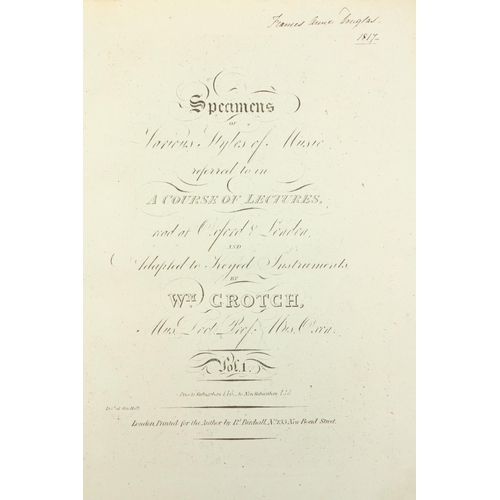 Frances Anne Douglas.
1817.
Specimens
OF
Various Styles of Music
referred to in
A COURSE OF LECTURES,
read at Oxford & London,
AND
Adapted to Keyed Instruments
BY
Wm CROTCH,
Mus. Doct. Prof. Mus. Oxon.
Vol. 1.
Price to Subscribers to Non Subscribers
Ent.d at Sta. Hall.
London, Printed for the Author by Rt. Birchall, No. 133 New Bond Street.